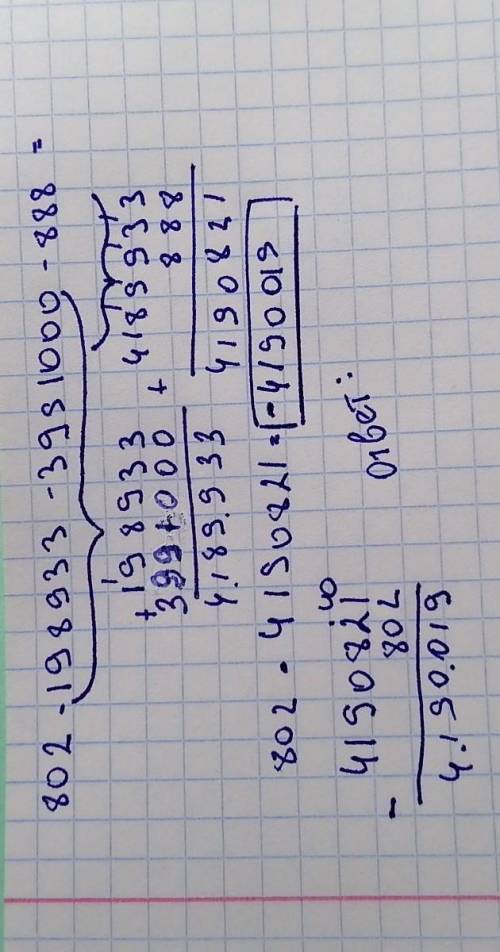 802 - 198933 - 3991000 - 888 =
+ 198933
3991000
4.189.933
+ 4189933
888
4190821
802 - 4190821 = - 4190019
- 4190821
802
4.190.019
ответ: